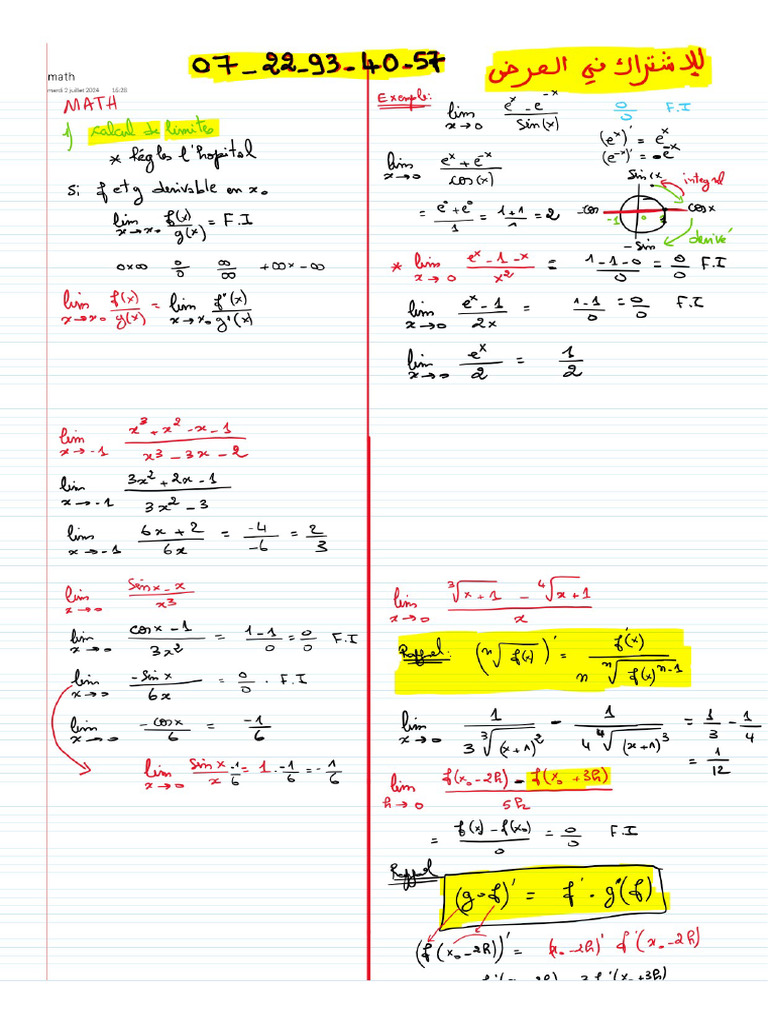 07_22_93_40_57
للإشتراك في العرض
math
mardi 2 juillet 2024 16:28
MATH
1) calcul de limites
* Régles l'hopital
Si f et g derivable en x₀
lim x→x₀ f(x)/g(x) = F.I
0×∞ 0/0 ∞/∞ +∞×-∞
lim x→x₀ f(x)/g(x) = lim x→x₀ f'(x)/g'(x)
lim x→-1 (x³+x²-x-1)/(x³-3x-2)
lim x→-1 (3x²+2x-1)/(3x²-3)
lim x→-1 (6x+2)/6x = -4/-6 = 2/3
lim x→0 (sinx-x)/x³
lim x→0 (cosx-1)/3x² = (1-1)/0 = 0/0 F.I
lim x→0 -sinx/6x = 0/0 . F.I
lim x→0 -cosx/6 = -1/6
lim x→0 sinx/x · -1/6 = 1 · -1/6 = -1/6
Exemple:
lim x→0 (eˣ-e⁻ˣ)/sin(x) 0/0 F.I
(eˣ)' = eˣ
(e⁻ˣ)' = -e⁻ˣ
lim x→0 (eˣ+e⁻ˣ)/cos(x)
= (e⁰+e⁰)/1 = (1+1)/1 = 2
sin(x
integral
-cos -1 0 1 cosx
-sin derivé
* lim x→0 (eˣ-1-x)/x² = (1-1-0)/0 = 0/0 F.I
lim x→0 (eˣ-1)/2x = (1-1)/0 = 0/0 F.I
lim x→0 eˣ/2 = 1/2
lim x→0 (³√(x+1) - ⁴√(x+1))/x
Rappel: (ⁿ√f(x))' = f'(x)/(n ⁿ√(f(x)ⁿ⁻¹))
lim x→0 1/(3 ³√(x+1)²) - 1/(4 ⁴√(x+1)³) = 1/3 - 1/4
= 1/12
lim h→0 (f(x₀-2h) - f(x₀+3h))/5h
= (f(x)-f(x₀))/0 = 0/0 F.I
Rappel
(g∘f)' = f' · g'(f)
(f(x₀-2h))' = (x₀-2h)' f'(x₀-2h)